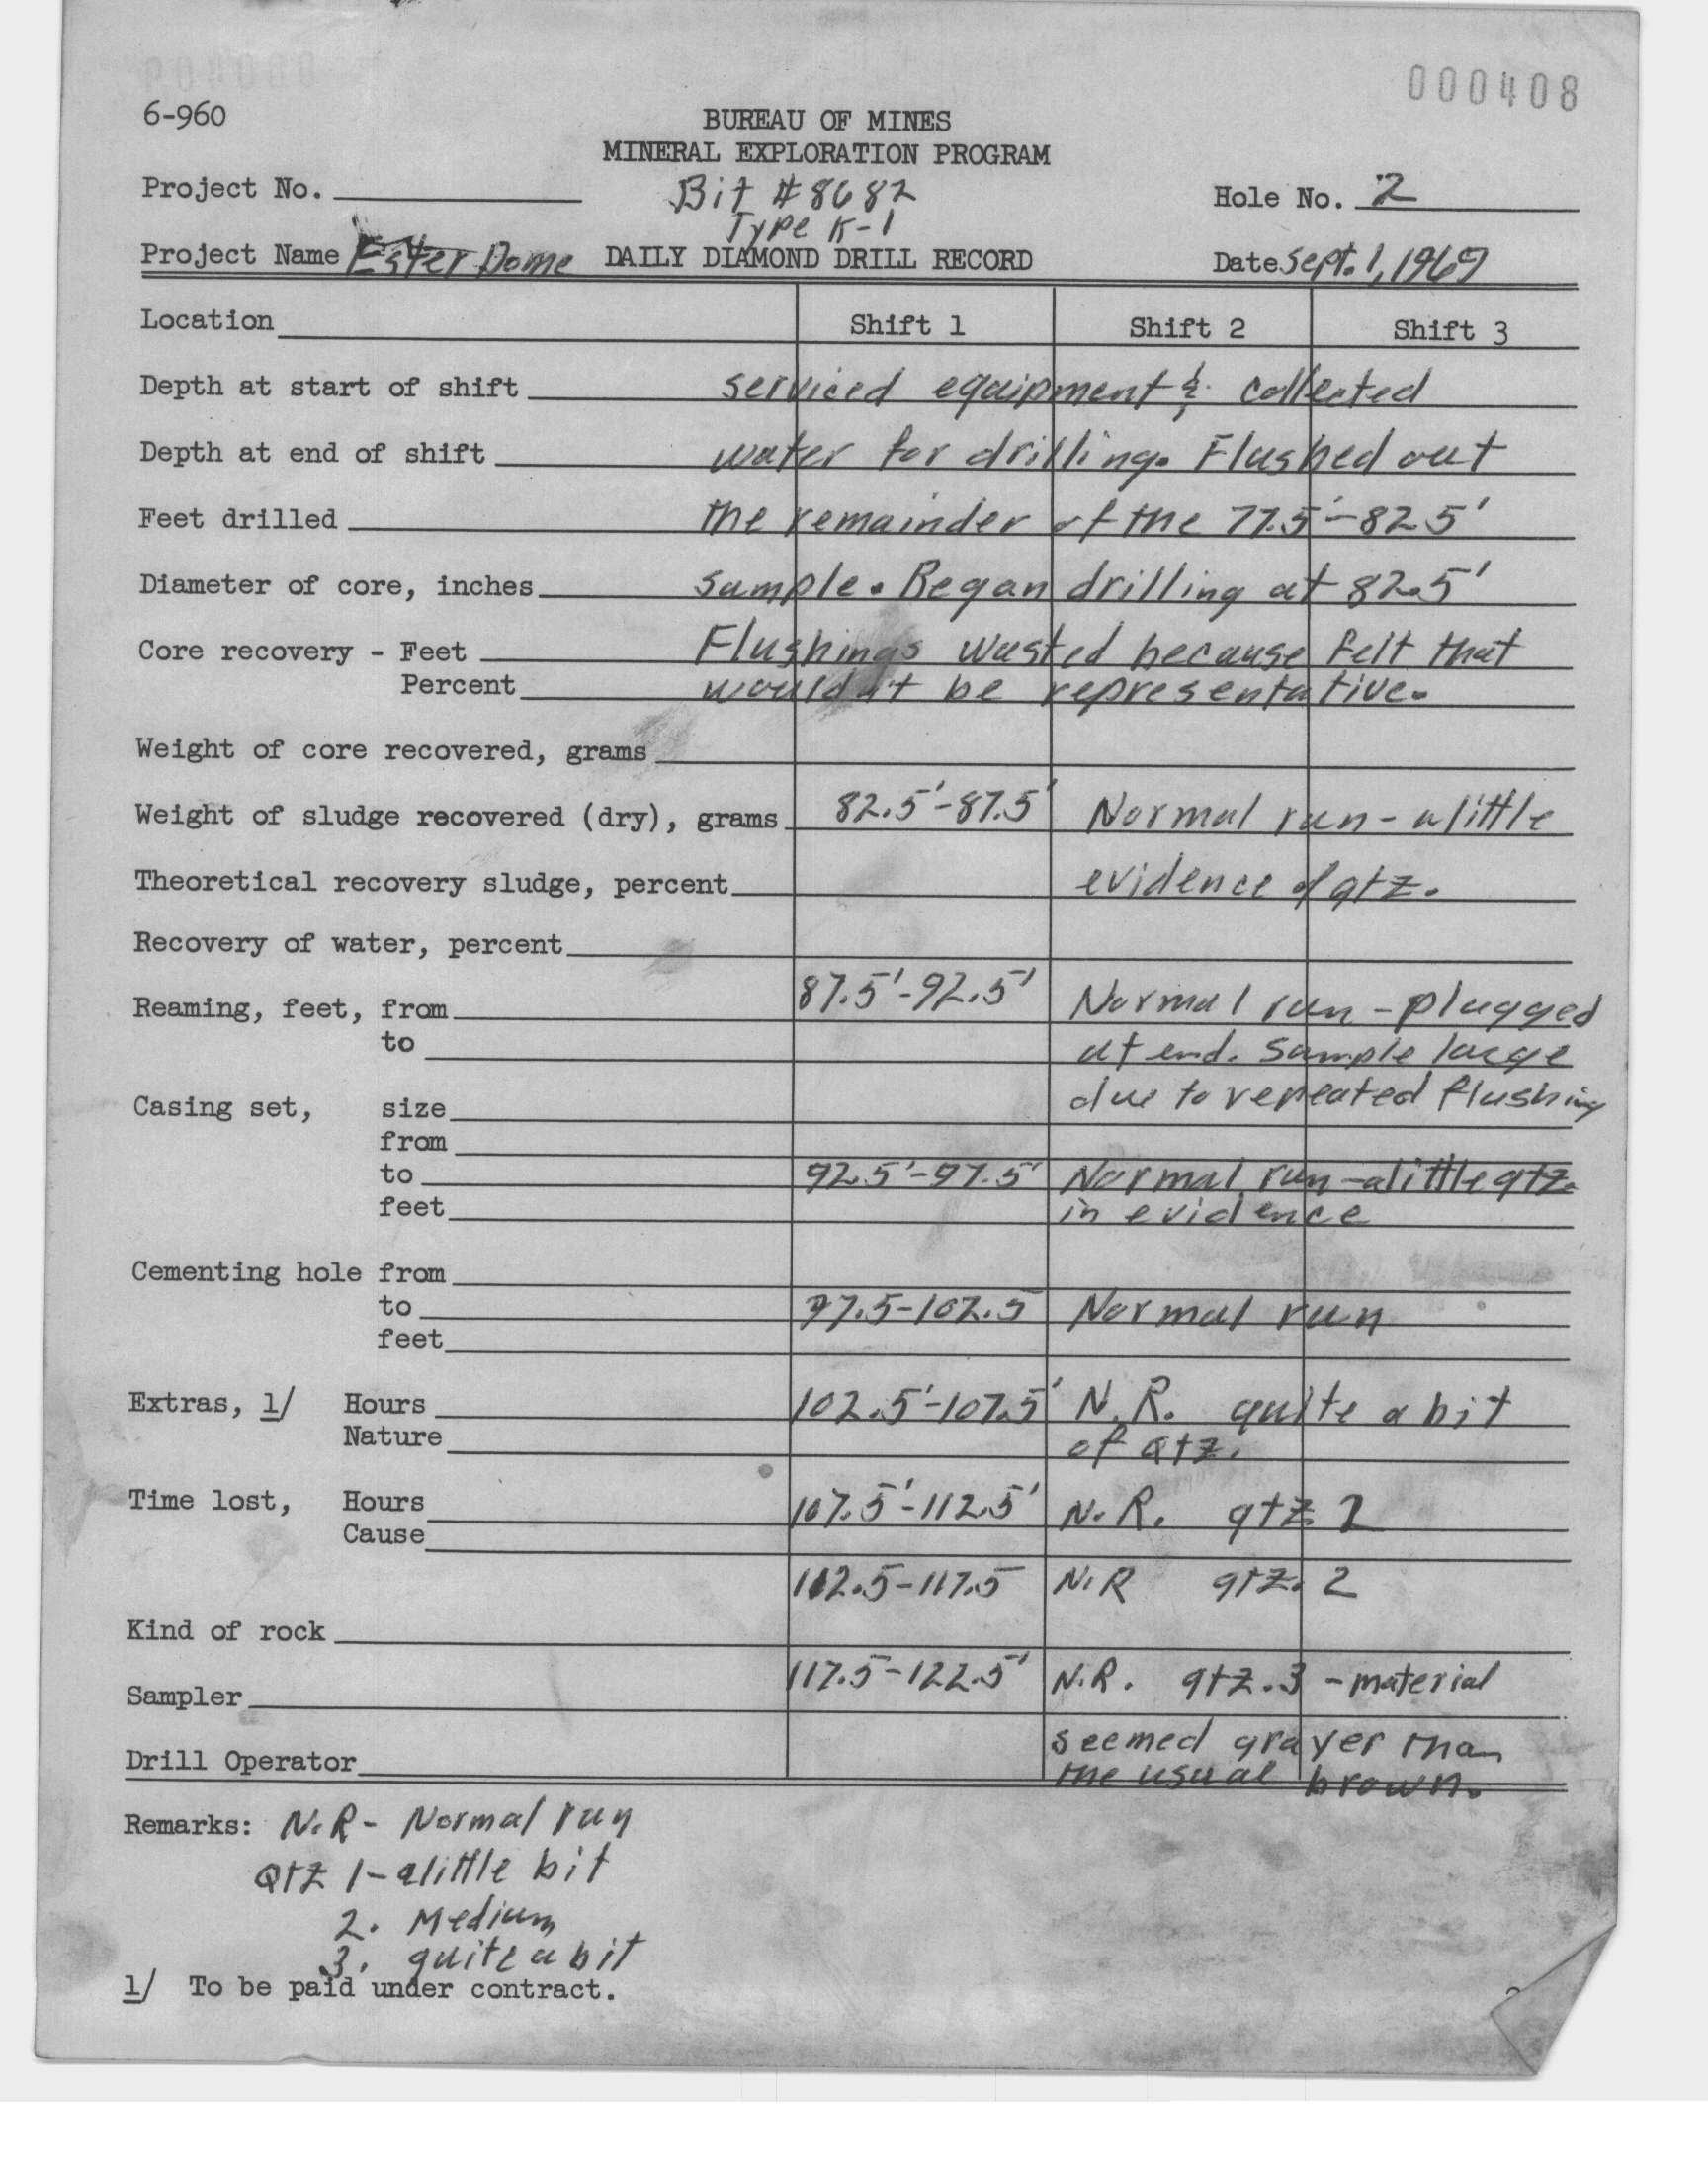 000408
6-960
BUREAU OF MINES
MINERAL EXPLORATION PROGRAM
Project No. Bit #8682 Hole No. 2
Type K-1
Project Name Ester Dome DAILY DIAMOND DRILL RECORD Date Sept. 1, 1969
Location Shift 1 Shift 2 Shift 3
Depth at start of shift serviced equipment & collected
Depth at end of shift water for drilling. Flushed out
Feet drilled the remainder of the 77.5'-82.5'
Diameter of core, inches sample. Began drilling at 82.5'
Core recovery - Feet Flushings wasted because felt that
Percent wouldn't be representative.
Weight of core recovered, grams
Weight of sludge recovered (dry), grams 82.5'-87.5' Normal run - a little
Theoretical recovery sludge, percent evidence of qtz.
Recovery of water, percent
Reaming, feet, from 87.5'-92.5' Normal run - plugged
to at end. Sample large
Casing set, size due to repeated flushing
from
to 92.5'-97.5' Normal run - a little qtz.
feet in evidence
Cementing hole from
to 97.5-102.5 Normal run
feet
Extras, 1/ Hours 102.5'-107.5' N.R. quite a bit
Nature of Qtz.
Time lost, Hours 107.5'-112.5' N.R. qtz 2
Cause
112.5-117.5 N.R qtz. 2
Kind of rock
Sampler 117.5-122.5' N.R. qtz. 3 - material
Drill Operator seemed grayer than
the usual brown.
Remarks: N.R - Normal run
Qtz 1 - a little bit
2. Medium
3. quite a bit
1/ To be paid under contract.